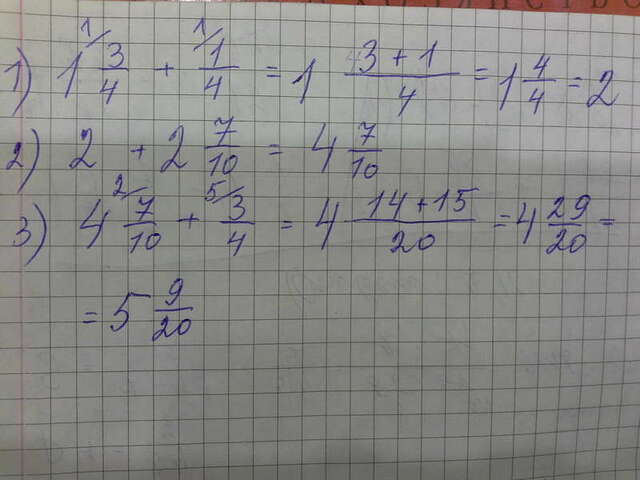 ХОЗЯЙСТВО
1) 1 1/ 3/4 + 1/ 1/4 = 1 (3 + 1)/4 = 1 4/4 = 2
2) 2 + 2 7/10 = 4 7/10
3) 4 2/ 7/10 + 5/ 3/4 = 4 (14 + 15)/20 = 4 29/20 =
= 5 9/20